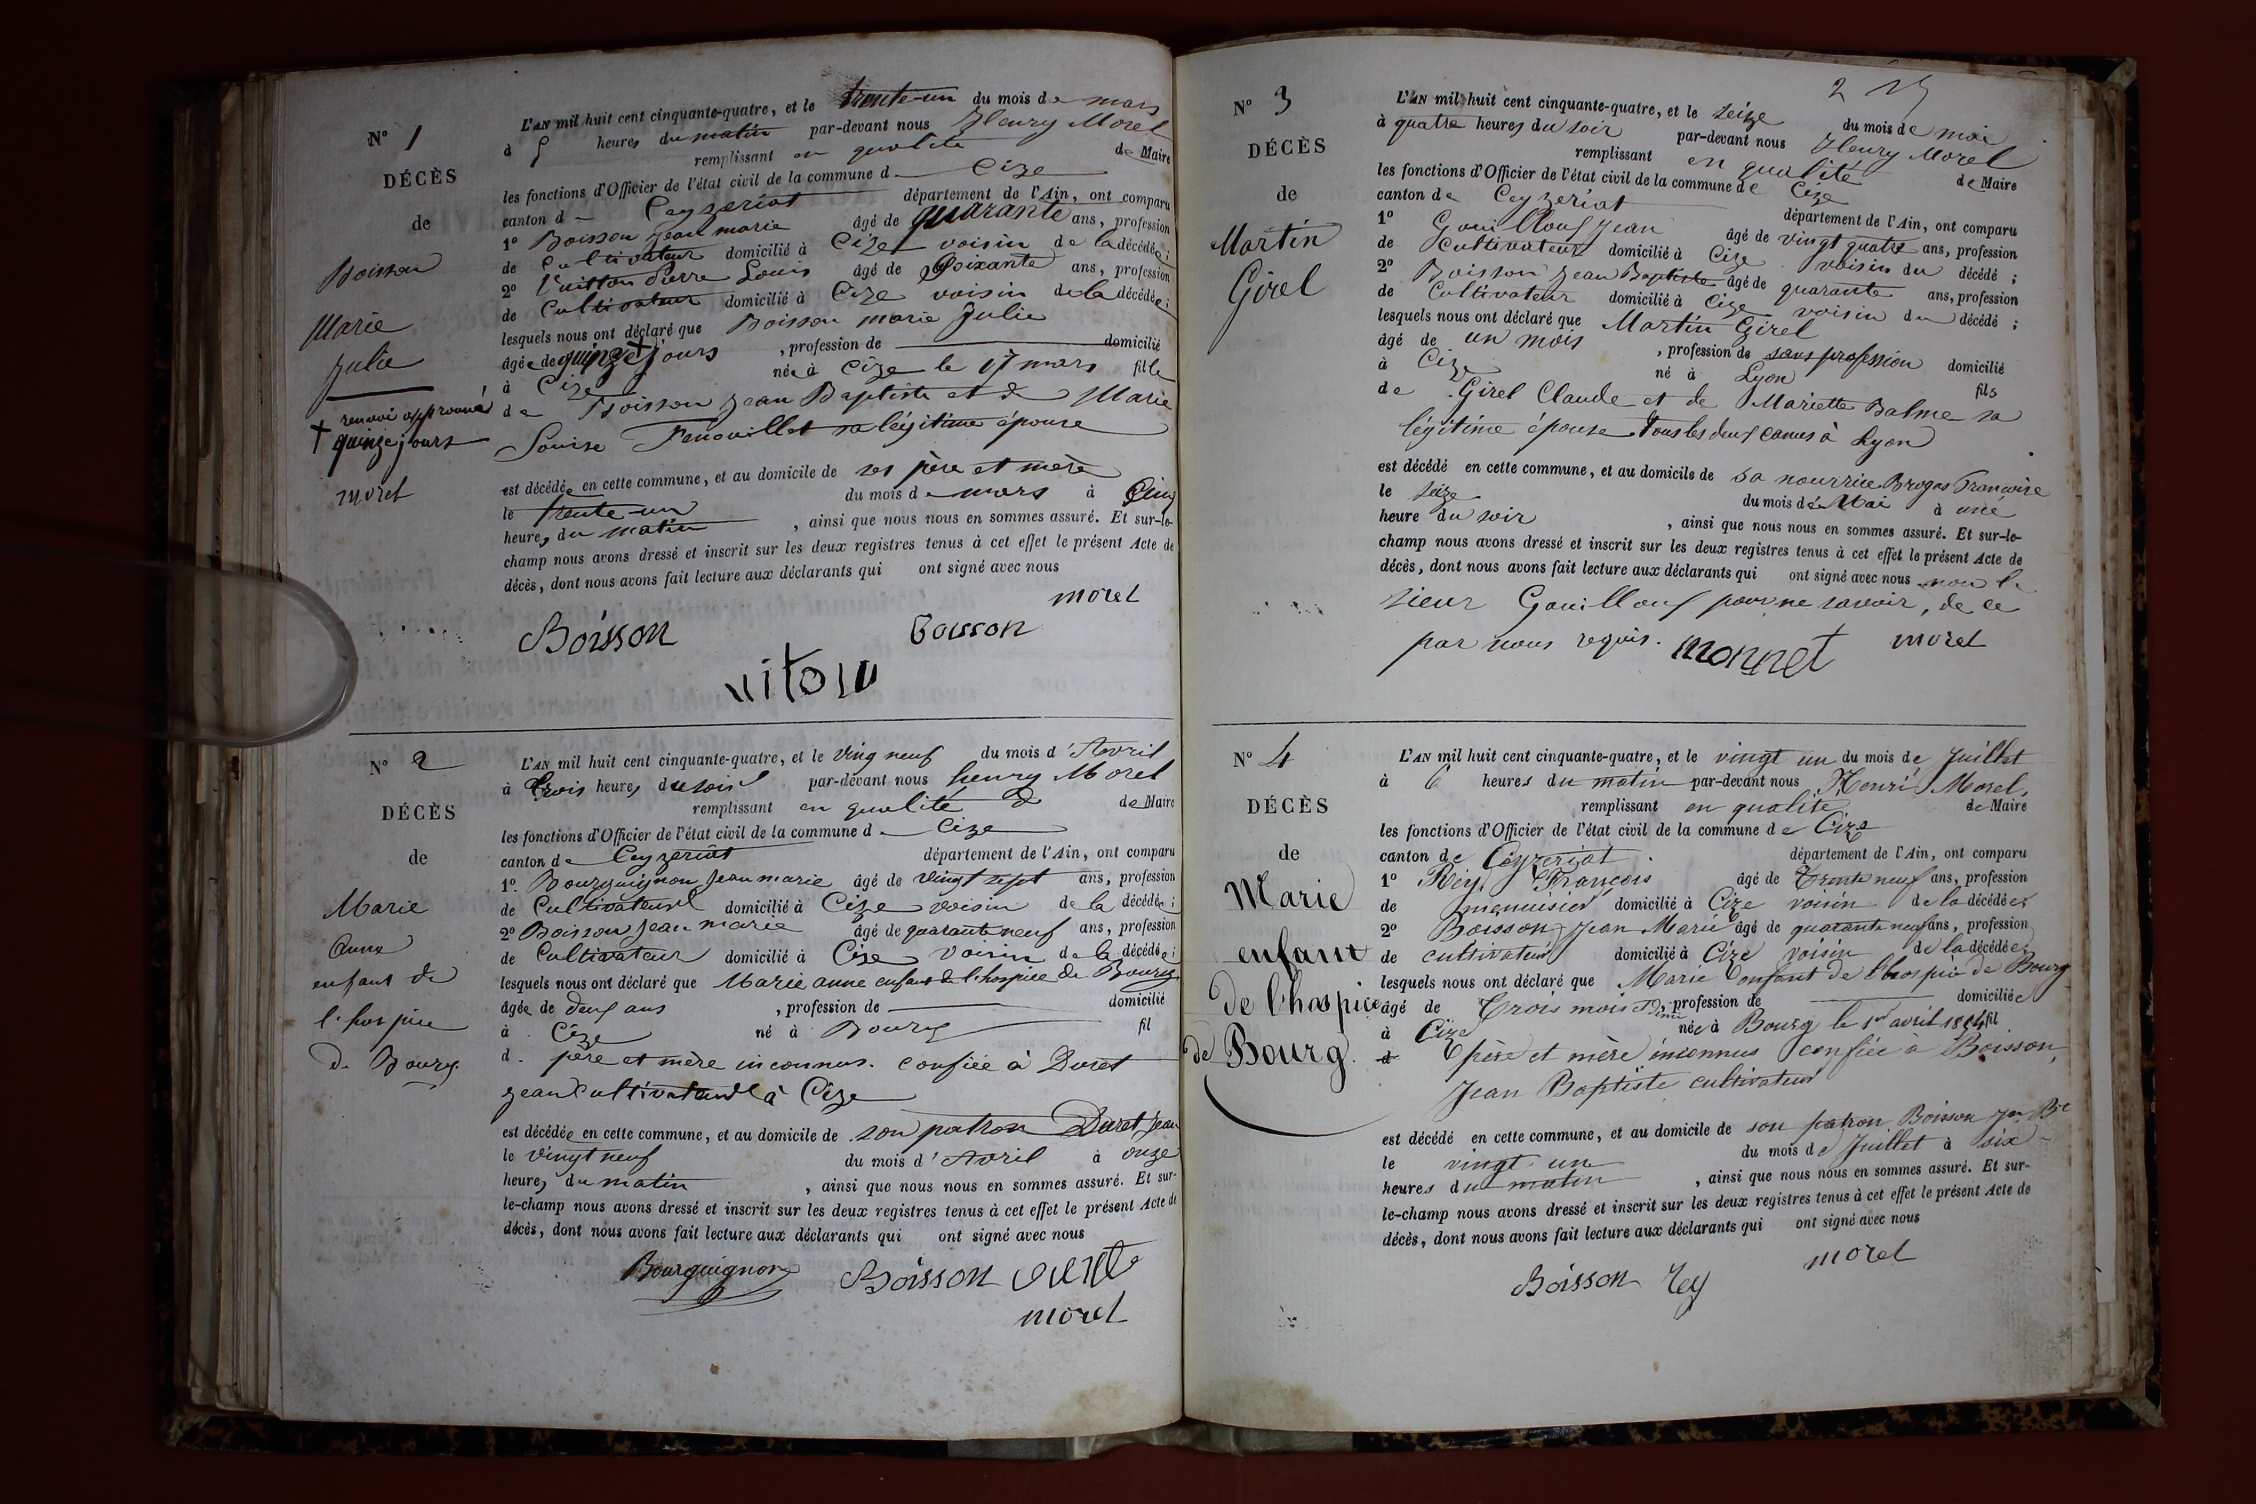 N° 1
DÉCÈS
de
Boisson
Marie
Julie
† renvoi approuvé
quinze jours
morel
L'AN mil huit cent cinquante-quatre, et le trente-un du mois de mars
à 5 heures du matin par-devant nous Henry Morel
remplissant en qualité de Maire
les fonctions d'Officier de l'état civil de la commune d Cize
canton d Ceyzeriat département de l'Ain, ont comparu
1° Boisson Jean marie âgé de quarante ans, profession
de Cultivateur domicilié à Cize voisin de la décédée;
2° Vuitton Pierre Louis âgé de soixante ans, profession
de Cultivateur domicilié à Cize voisin de la décédée;
lesquels nous ont déclaré que Boisson marie Julie
âgée de quinze † jours , profession de domicilié
à Cize née à Cize le 17 mars fille
de Boisson Jean Baptiste et de Marie
Louise Fenouillet sa légitime épouse
est décédée en cette commune, et au domicile de ses père et mère
le trente-un du mois de mars à Cinq
heures du matin , ainsi que nous nous en sommes assuré. Et sur-le-
champ nous avons dressé et inscrit sur les deux registres tenus à cet effet le présent Acte de
décès, dont nous avons fait lecture aux déclarants qui ont signé avec nous
morel
Boisson Boisson
vitou
N° 2
DÉCÈS
de
Marie
Anne
enfant de
l'hospice
de Bourg
L'AN mil huit cent cinquante-quatre, et le ving neuf du mois d'Avril
à trois heures du soir par-devant nous henry Morel
remplissant en qualité de Maire
les fonctions d'Officier de l'état civil de la commune d Cize
canton de Ceyzeriat département de l'Ain, ont comparu
1° Bourguignon Jean marie âgé de vingt sept ans, profession
de Cultivateur domicilié à Cize voisin de la décédée;
2° Boisson Jean marie âgé de quarante neuf ans, profession
de Cultivateur domicilié à Cize voisin de la décédée;
lesquels nous ont déclaré que Marie anne enfant de l'hospice de Bourg
âgée de deux ans , profession de domicilié
à Cize né à Bourg fil
d père et mère inconnus. confiée à Duret
Jean Cultivateur à Cize
est décédée en cette commune, et au domicile de son patron Duret Jean
le vingt neuf du mois d'Avril à onze
heures du matin , ainsi que nous nous en sommes assuré. Et sur-
le-champ nous avons dressé et inscrit sur les deux registres tenus à cet effet le présent Acte de
décès, dont nous avons fait lecture aux déclarants qui ont signé avec nous
Bourguignon Boisson
morel
2
N° 3
DÉCÈS
de
Martin
Girel
L'AN mil huit cent cinquante-quatre, et le seize du mois de mai
à quatre heures du soir par-devant nous Henry Morel
remplissant en qualité de Maire
les fonctions d'Officier de l'état civil de la commune de Cize
canton de Ceyzeriat département de l'Ain, ont comparu
1° Gouilloux Jean âgé de vingt quatre ans, profession
de Cultivateur domicilié à Cize voisin du décédé;
2° Boisson Jean Baptiste âgé de quarante ans, profession
de Cultivateur domicilié à Cize voisin du décédé;
lesquels nous ont déclaré que Martin Girel
âgé de un mois , profession de sans profession domicilié
à Cize né à Lyon fils
de Girel Claude et de Mariette Balme sa
légitime épouse tous les deux canus à Lyon
est décédé en cette commune, et au domicile de sa nourrice Brogas Françoise
le seize du mois de Mai à une
heure du soir , ainsi que nous nous en sommes assuré. Et sur-le-
champ nous avons dressé et inscrit sur les deux registres tenus à cet effet le présent Acte de
décès, dont nous avons fait lecture aux déclarants qui ont signé avec nous non le
sieur Gouilloux pour ne savoir, de ce
par nous requis. monnet morel
N° 4
DÉCÈS
de
Marie
enfant
de l'hospice
de Bourg.
L'AN mil huit cent cinquante-quatre, et le vingt un du mois de Juillet
à 6 heures du matin par-devant nous Henri Morel,
remplissant en qualité de Maire
les fonctions d'Officier de l'état civil de la commune de Cize
canton de Ceyzeriat département de l'Ain, ont comparu
1° Rey François âgé de Trente neuf ans, profession
de menuisier domicilié à Cize voisin de la décédée;
2° Boisson Jean Marie âgé de quarante neuf ans, profession
de cultivateur domicilié à Cize voisin de la décédée;
lesquels nous ont déclaré que Marie enfant de l'hospice de Bourg
âgé de Trois mois , profession de domiciliée
à Cize née à Bourg le 1er avril 1854 fil
d père et mère inconnus confiée à Boisson,
Jean Baptiste cultivateur
est décédé en cette commune, et au domicile de son patron Boisson Jean Bte
le vingt un du mois de Juillet à six
heures du matin , ainsi que nous nous en sommes assuré. Et sur-
le-champ nous avons dressé et inscrit sur les deux registres tenus à cet effet le présent Acte de
décès, dont nous avons fait lecture aux déclarants qui ont signé avec nous
morel
Boisson Rey